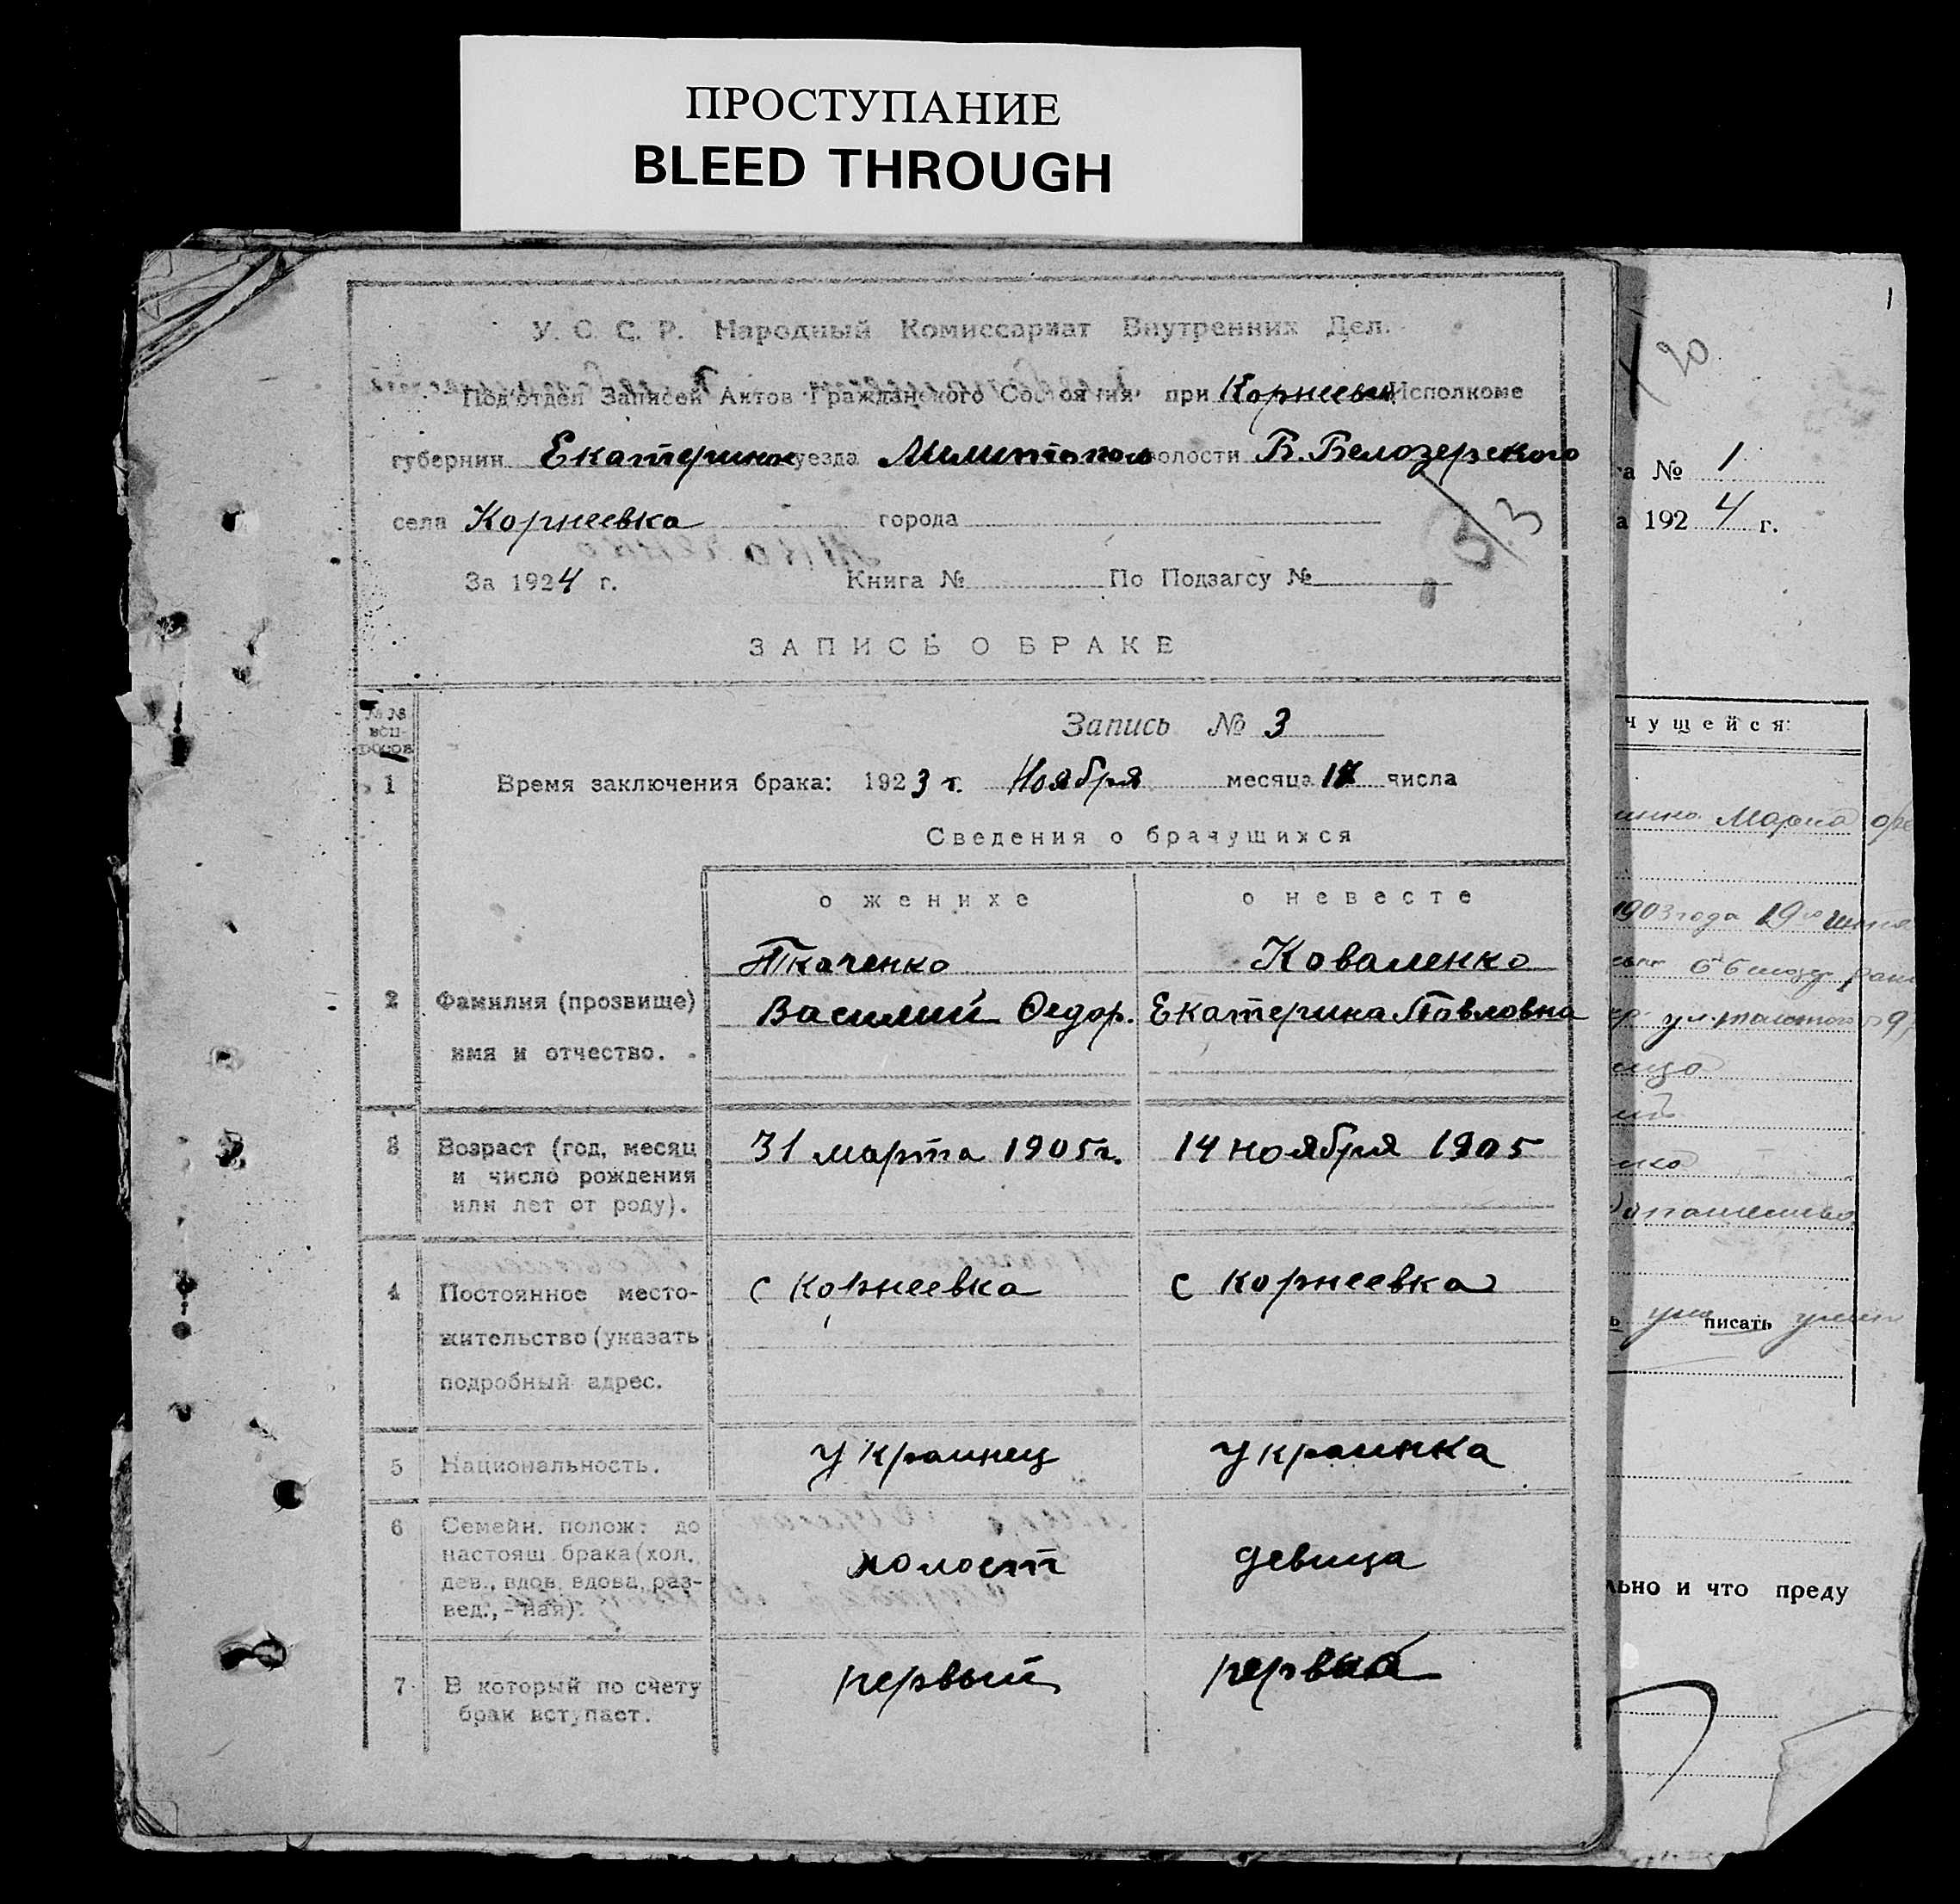 ПРОСТУПАНИЕ
BLEED THROUGH
У. С. С. Р. Народный Комиссариат Внутренних Дел.
Под'отдел Записей Актов Гражданского Состояния при Корнеевк Исполкоме
губернии Екатеринос уезда Мелитополь волости Б. Белозерского
села Корнеевка города
За 1924 г. Книга № По Подзагсу №
ЗАПИСЬ О БРАКЕ
№№ воп-росов
Запись № 3
1 Время заключения брака: 1923 г. Ноября месяца числа
Сведения о брачущихся
о женихе о невесте
Ткаченко Коваленко
2 Фамилия (прозвище) Василий Федор. Екатерина Павловна
имя и отчество.
3 Возраст (год, месяц 31 марта 1905 г. 14 ноября 1905
и число рождения
или лет от роду).
4 Постоянное место- с Корнеевка с Корнеевка
жительство (указать
подробный адрес.
5 Национальность. украинец украинка
6 Семейн. полож. до
настоящ. брака (хол., холост девица
дев., вдов, вдова, раз-
вед., - ная).
7 В который по счету первый первый
брак вступает.
1
№ 1
192 4 г.
чущейся:
Мария
1903 года 19го июня
писать
льно и что преду